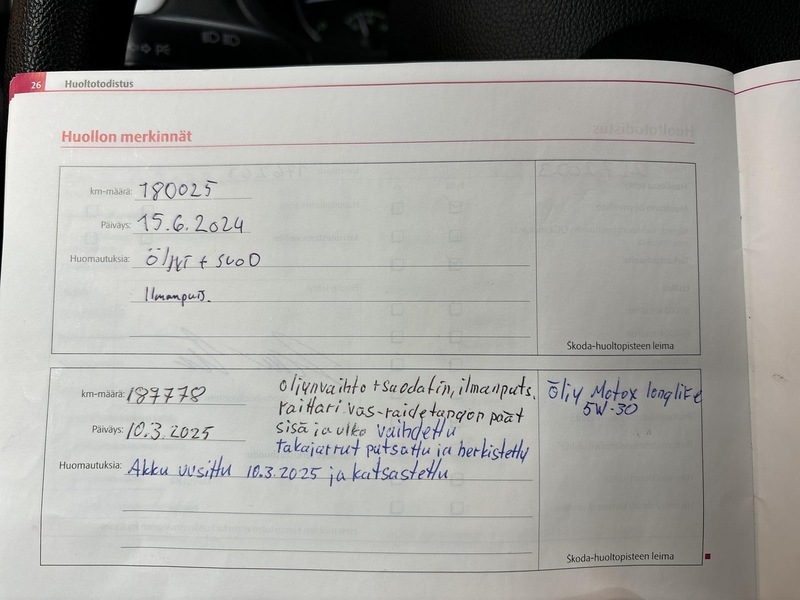 26 Huoltotodistus
Huollon merkinnät
km-määrä: 180025
Päiväys: 15.6.2024
Huomautuksia: Öljyt + suoD
Ilmanputs.
Škoda-huoltopisteen leima
km-määrä: 189778
Päiväys: 10.3.2025
öljynvaihto + suodatin, ilmanputs.
raittari vas-raidetangon päät
sisä ja ulko vaihdettu
takajarrut putsattu ja herkistetty
Huomautuksia: Akku uusittu 10.3.2025 ja katsastettu
Öljy Motox longlife
5W-30
Škoda-huoltopisteen leima